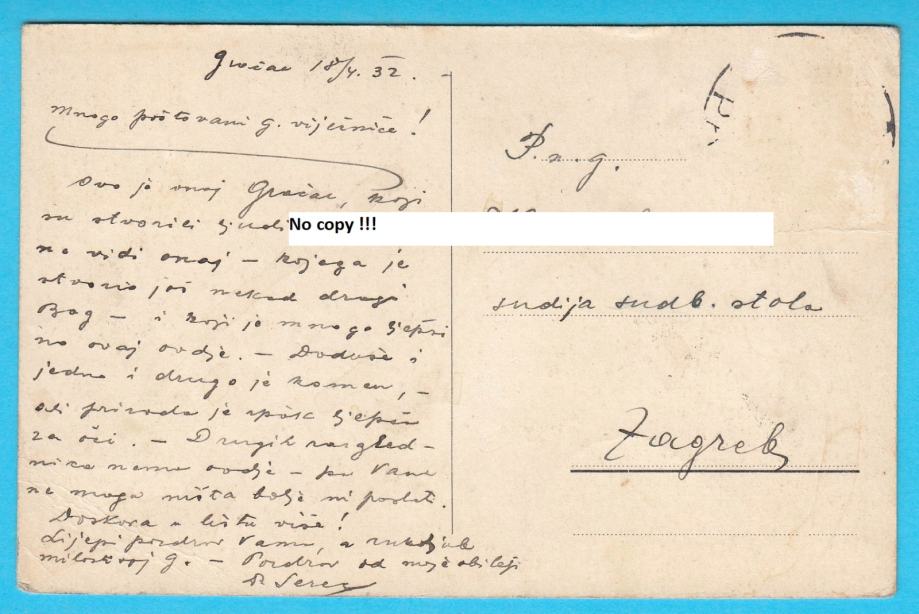 Gračac 18/4. 32.
Mnogo poštovani g. vijećniče!
Ovo je onaj Gračac, koji
su stvorili ljudi
No copy !!!
ne vidi onaj – kojega je
stvorio još nekad dragi
Bog – i koji je mnogo ljepši
no ovaj ovdje. – Doduše i
jedno i drugo je kamen, –
ali priroda je ipak ljepša
za oči. – Drugih razgled–
nica nema ovdje – pa Vam
ne mogu ništa bolje ni poslati.
Doskora u listu više!
Lijepi pozdrav Vama, a rukoljub
milostivoj g. – Pozdrav od moje obitelji
Dr
P. n. g.
sudija sudb. stola
Zagreb